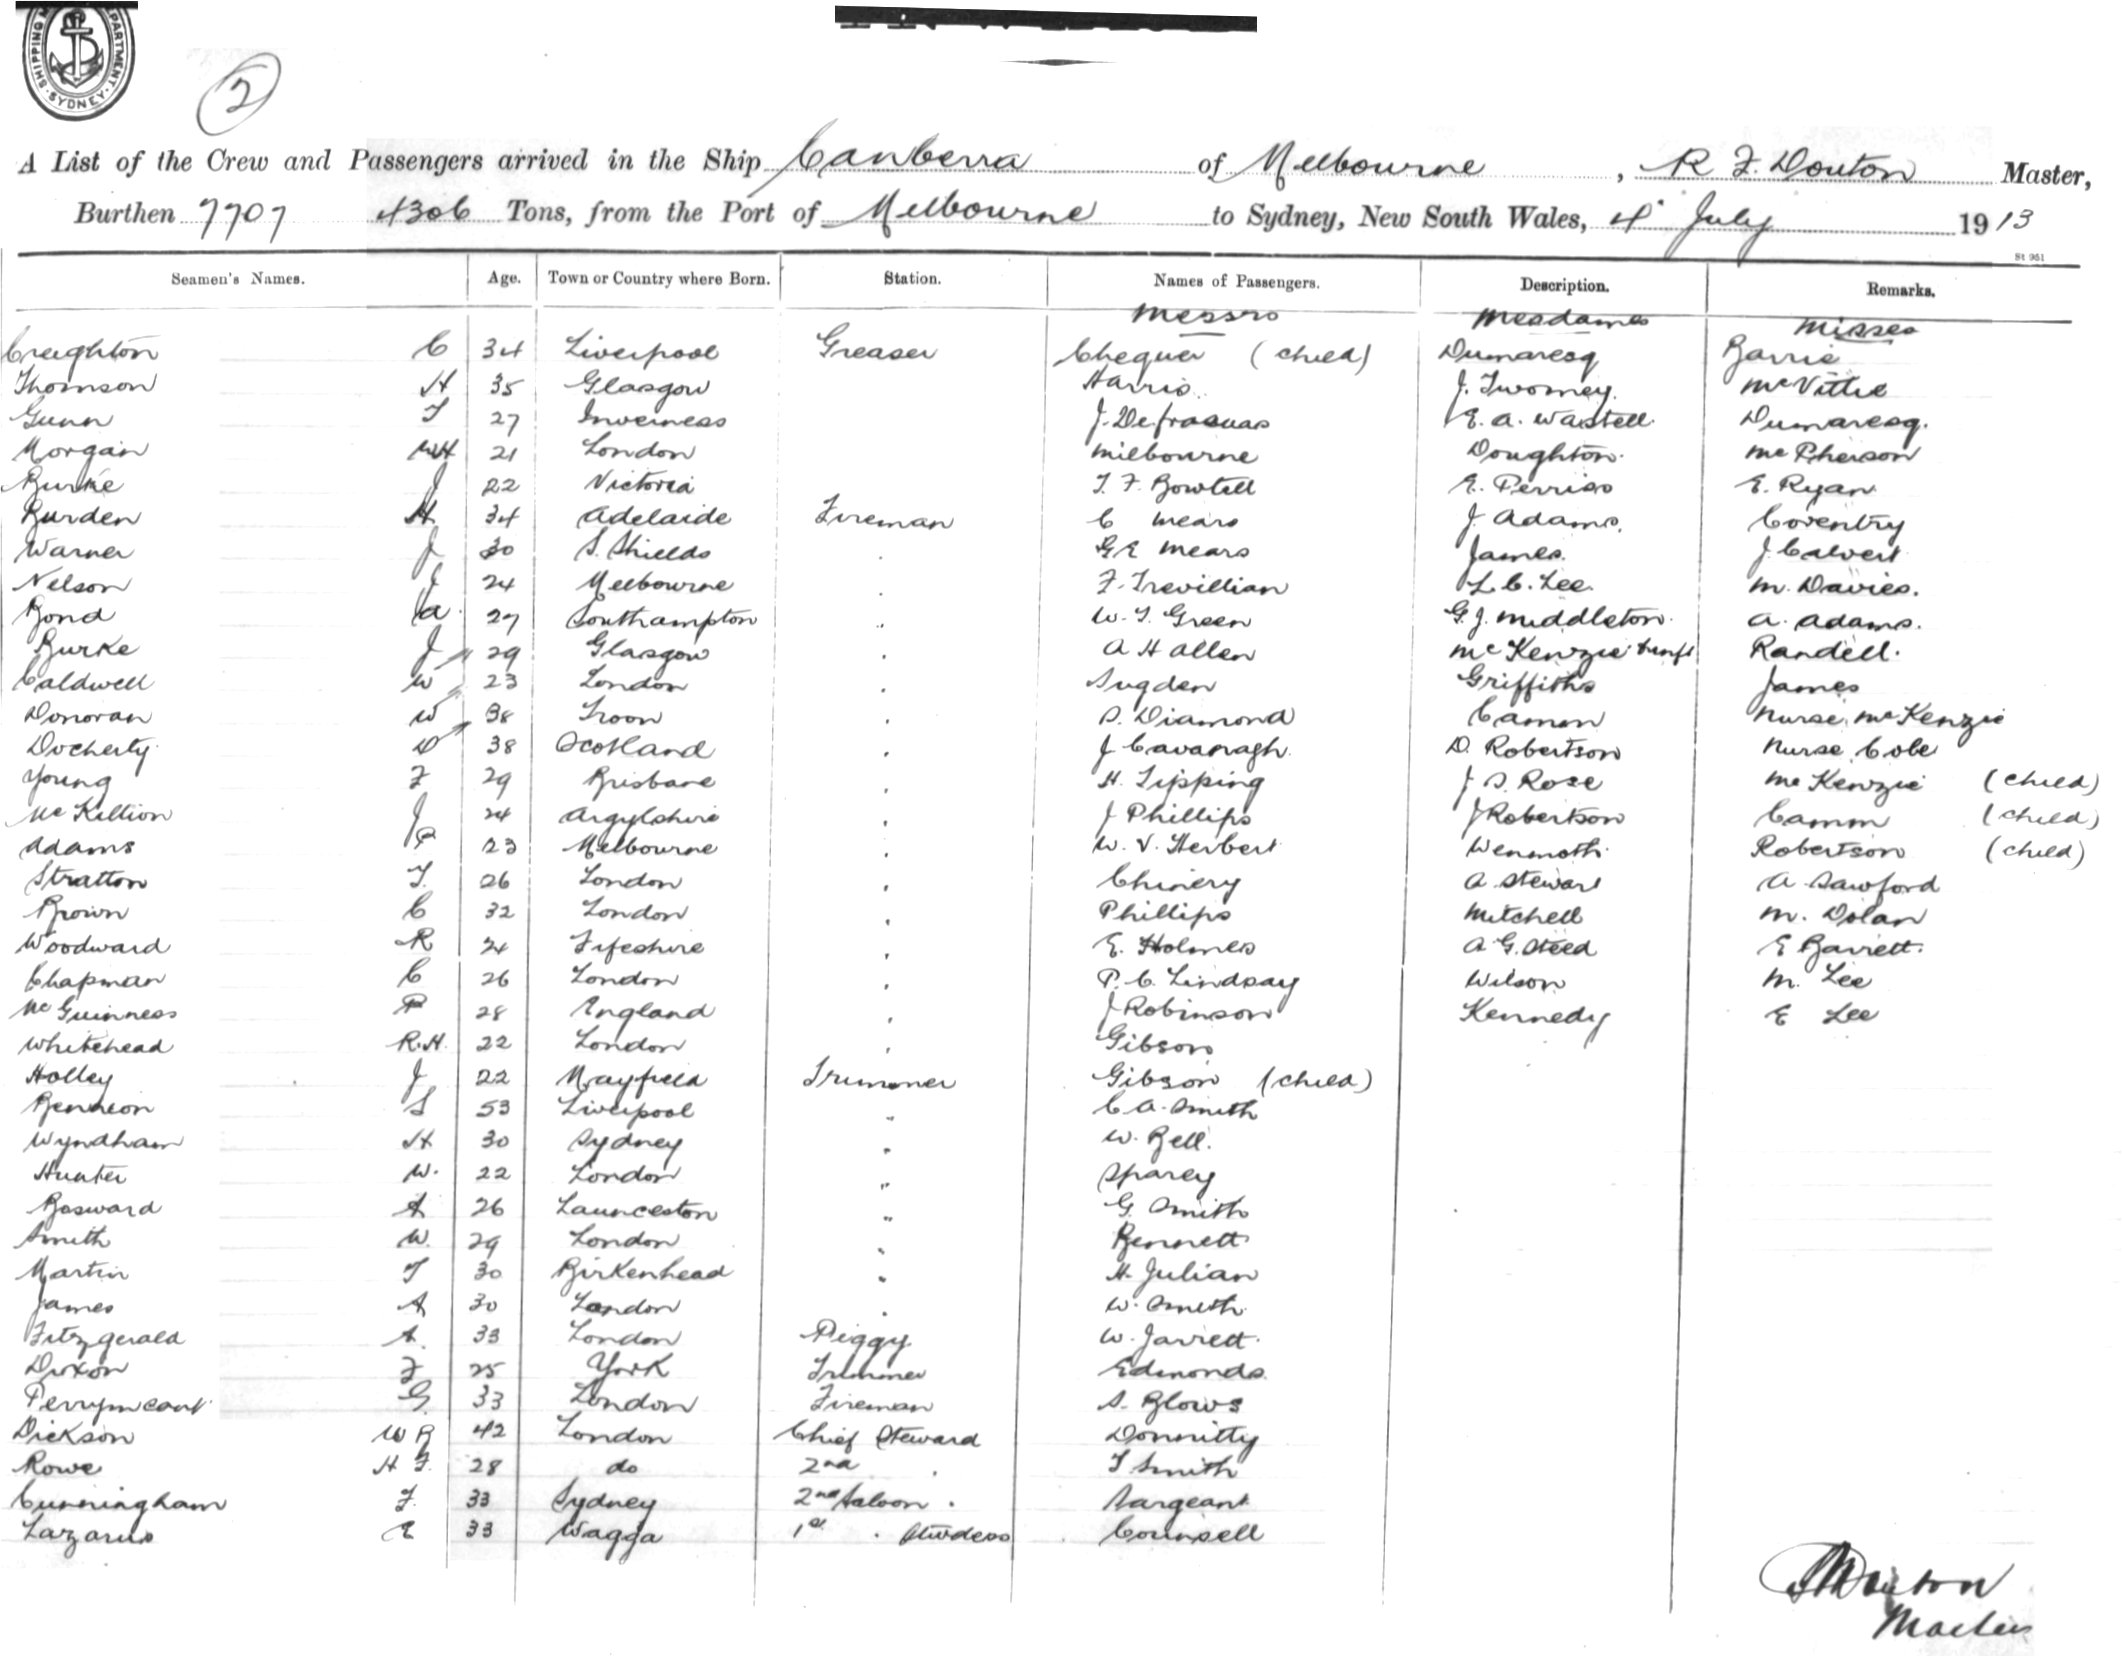 SHIPPING DEPARTMENT SYDNEY
2
A List of the Crew and Passengers arrived in the Ship Canberra of Melbourne, R F. Douton Master,
Burthen 7707 4306 Tons, from the Port of Melbourne to Sydney, New South Wales, 4 July 1913
St 951
Seamen's Names. Age. Town or Country where Born. Station. Names of Passengers. Description. Remarks.
Messrs Mesdames Misses
Creighton C 34 Liverpool Greaser Chequer (child) Dumaresq Barrie
Thomson H 35 Glasgow Harris J. Twomey McVittie
Gunn T 27 Inverness J. E. A. Wastell Dumaresq.
Morgan WH 21 London Milbourne Doughton McPherson
Burke J 22 Victoria T. F. Bowtell E. Perriss E. Ryan
Burden H 34 Adelaide Fireman C Mears J. Adams Coventry
Warner J 30 S. Shields " G E Mears James J Calvert
Nelson J 24 Melbourne " F. Trevillian L. C. Lee M. Davies.
Bond A 27 Southampton " W. T. Green G. J. Middleton A. Adams.
Burke J 29 Glasgow " A H Allen McKenzie Randell.
Caldwell W 23 London " Sugden Griffiths James
Donovan W 38 Troon " S. Diamond Camm Nurse McKenzie
Docherty D 38 Scotland " J Cavanagh D. Robertson Nurse Cole
Young F 29 Brisbane " H. Tipping J. S. Rose McKenzie (child)
McKillion J 24 Argylshire " J Phillips J Robertson Camm (child)
Adams P 23 Melbourne " W. V. Herbert Wenmoth Robertson (child)
Stratton T. 26 London " Chinery A Stewart A Sawford
Brown C 32 London " Phillips Mitchell M. Dolan
Woodward R 24 Fifeshire " E. Holmes A. G. Steed E Barrett.
Chapman C 26 London " P. C. Lindsay Wilson M. Lee
McGuinness P 28 England " J Robinson Kennedy E Lee
Whitehead R.H. 22 London " Gibson
Holley J 22 Mayfield Trimmer Gibson (child)
Bennion S 53 Liverpool " C A. Smith
Wyndham H 30 Sydney " W. Bell.
Hunter W. 22 London " Sparey
Basward A 26 Launceston " G. Smith
Smith W. 29 London " Bennett
Martin T 30 Birkenhead " H. Julian
James A 30 London " W. Smith
Fitzgerald A. 33 London Peggy W. Jarrett.
Dixon F 25 York Trimmer Edmonds.
Perrymeant G. 33 London Fireman S. Blows
Dickson W R 42 London Chief Steward Donnitty
Rowe H F. 28 do 2nd " T Smith
Cunningham F. 33 Sydney 2nd Saloon " Sargeant
Lazarus E 33 Wagga 1st " Stwdess Counsell
Douton
Master